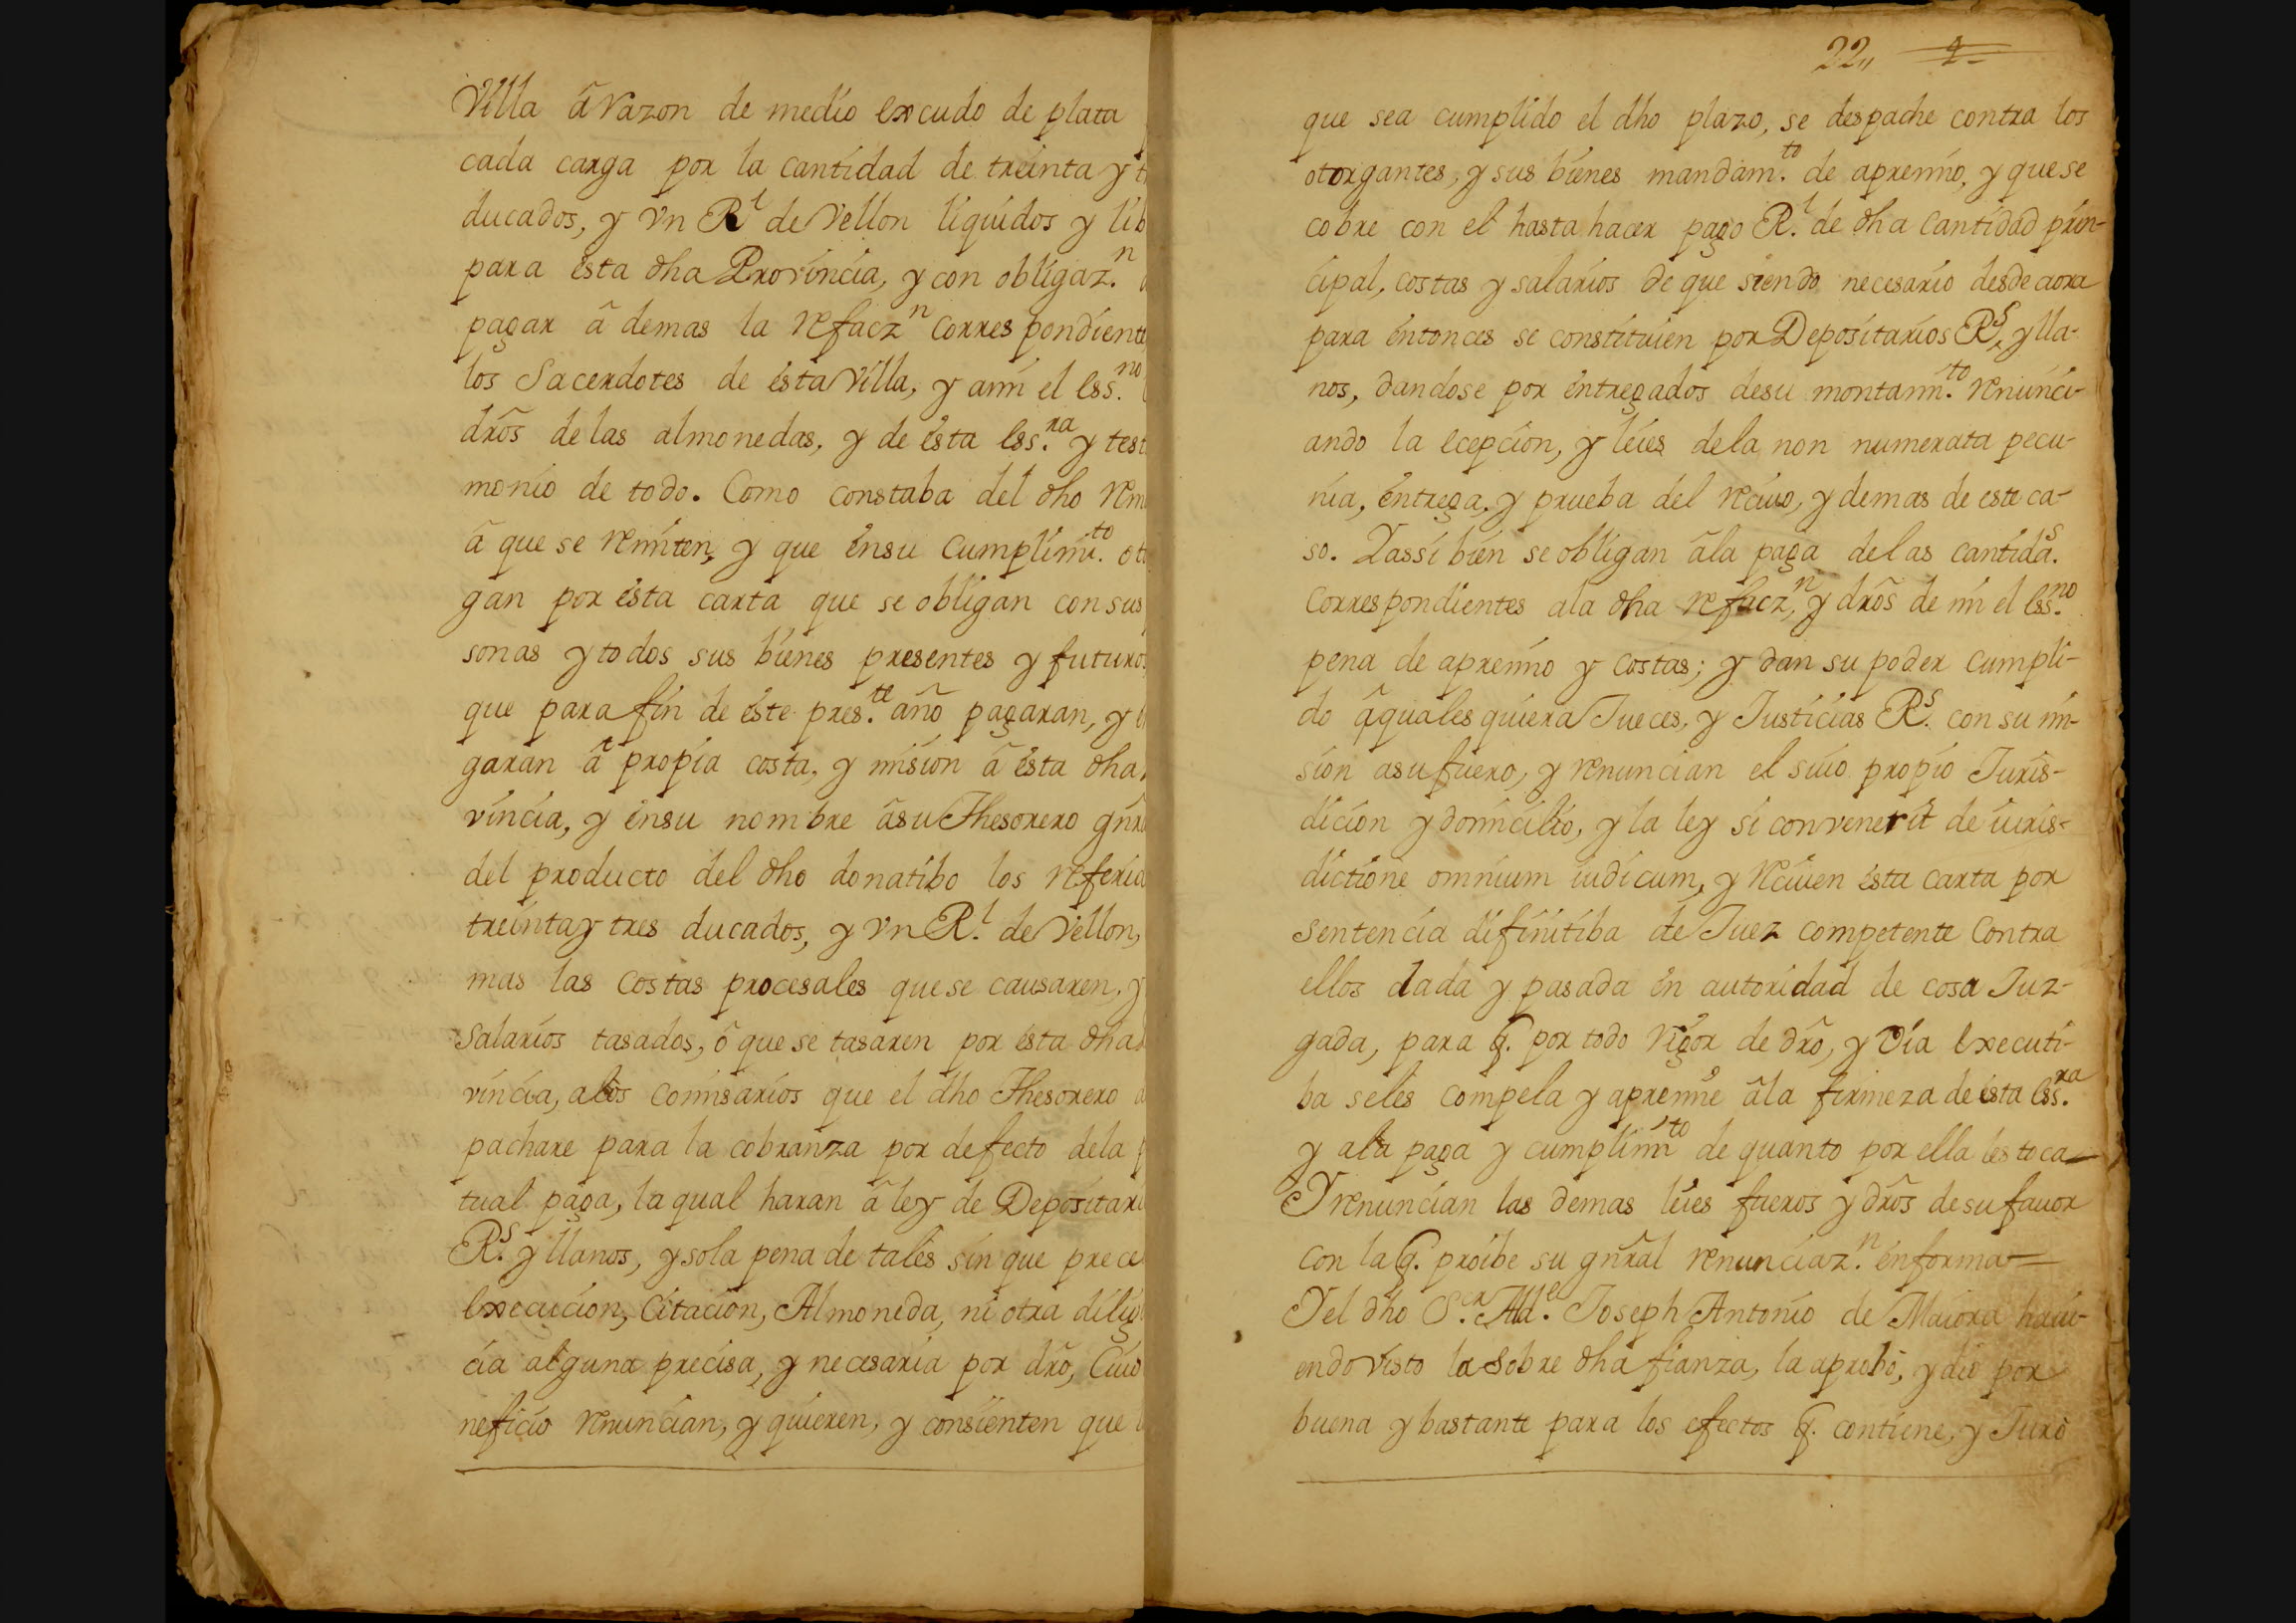 Villa â razon de medio excudo de plata
cada carga por la cantidad de treinta y
ducados, y vn R.l de Vellon liquidos y lib
para ésta dha Provincia, y con obligaz.n
pagar â demas la refacz.n correspondiente
los Sacerdotes de ésta Villa, y ami el ess.no
drõs delas almonedas, y de ésta ess.ra y test
monio de todo. Como constaba del dho rem
â que se remiten, y que énsu cumplim.to ot
gan por ésta carta que se obligan consus
sonas y todos sus bienes presentes y futuros
que para fin de éste pres.te año pagaran, y
garan â propia costa, y mision â ésta dha
vincia, y énsu nombre âsu Thesorero gnr
del producto del dho donatibo los referid
treinta y tres ducados, y vn R.l de Vellon,
mas las costas procesales quese causaren, y
salarios tasados, ô que se tasaren por ésta dha
vincia, alos comisarios que el dho Thesorero
pachare para la cobranza por defecto dela
tual paga, la qual haran â ley de Depositari
R.s y llanos, y sola pena de tales sin que prece
execucion, Citacion, Almoneda, ni otra dilig
cia alguna precisa, y necesaria por drõ, Cuio
neficio renuncian, y quieren, y consienten que
22,, 4
que sea cumplido el dho plazo, se despache contra los
otorgantes, y sus bienes mandam.to de apremio, y quese
cobre con el hasta hacer pago R.l de dha cantidad prin-
cipal, costas y salarios de que siendo necesario desde aora
para éntonces se constituien por Depositarios R.s, y lla-
nos, dandose por éntregados desu montam.to renunci-
ando la ecepcion, y leies dela non numerata pecu-
nia, éntrega, y prueba del reciuo, y demas de este ca-
so. Yassi bien se obligan âla paga delas cantida.s
correspondientes ala dha refacz.n, y drõs de mi el ess.no
pena de apremio y costas; y dan su poder cumpli-
do âquales quiera Jueces, y Justicias R.s con su mi-
sion asu fuero, y renuncian el suio propio Juris-
dicion y domicilio, y la ley si convenerit de iuris-
dictione omnium iudicum, y reciuen ésta carta por
sentencia difinitiba de Juez competente Contra
ellos dada y pasada én autoridad de cosa Juz-
gada, para q. por todo rigor de drõ, y vía executi-
ba seles compela y apremie âla firmeza de ésta ess.ra
y ala paga y cumplim.to de quanto por ella les toca
Yrenuncian las demas leies fueros y drõs desu fauor
con la q. proibe su gñral renunciaz.n énforma
Yel dho S.r Alld.e Joseph Antonio de Maiora haui-
endo visto la sobre dha fianza, la aprobò, y dio por
buena y bastante para los efectos q. contiene, y Jurò